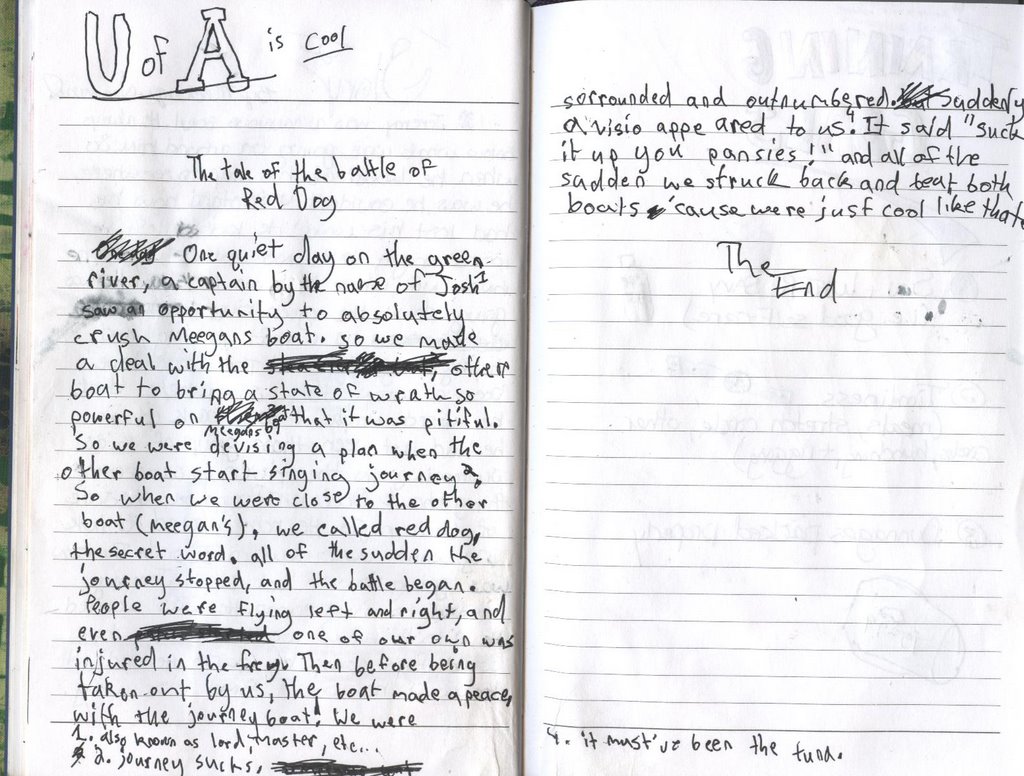 U of A is cool
The tale of the battle of
Red Dog
One quiet day on the green
river, a captain by the name of Josh¹
saw an opportunity to absolutely
crush Meegans boat. so we made
a deal with the other
boat to bring a state of wrath so
powerful on Meegans boat that it was pitiful.
So we were devising a plan when the
other boat start singing journey².
So when we were close to the other
boat (meegan's), we called red dog,
the secret word. all of the sudden the
journey stopped, and the battle began.
People were flying left and right, and
even one of our own was
injured in the frey. Then before being
taken out by us, the boat made a peace,
with the journey boat! We were
1. also known as lord, master, etc...
2. journey sucks.
sorrounded and outnumbered. suddenly
a visio appe ared to us⁴. It said "suck
it up you pansies!'" and all of the
sudden we struck back and beat both
boats 'cause were just cool like that.
The
End
4. it must've been the tuna.